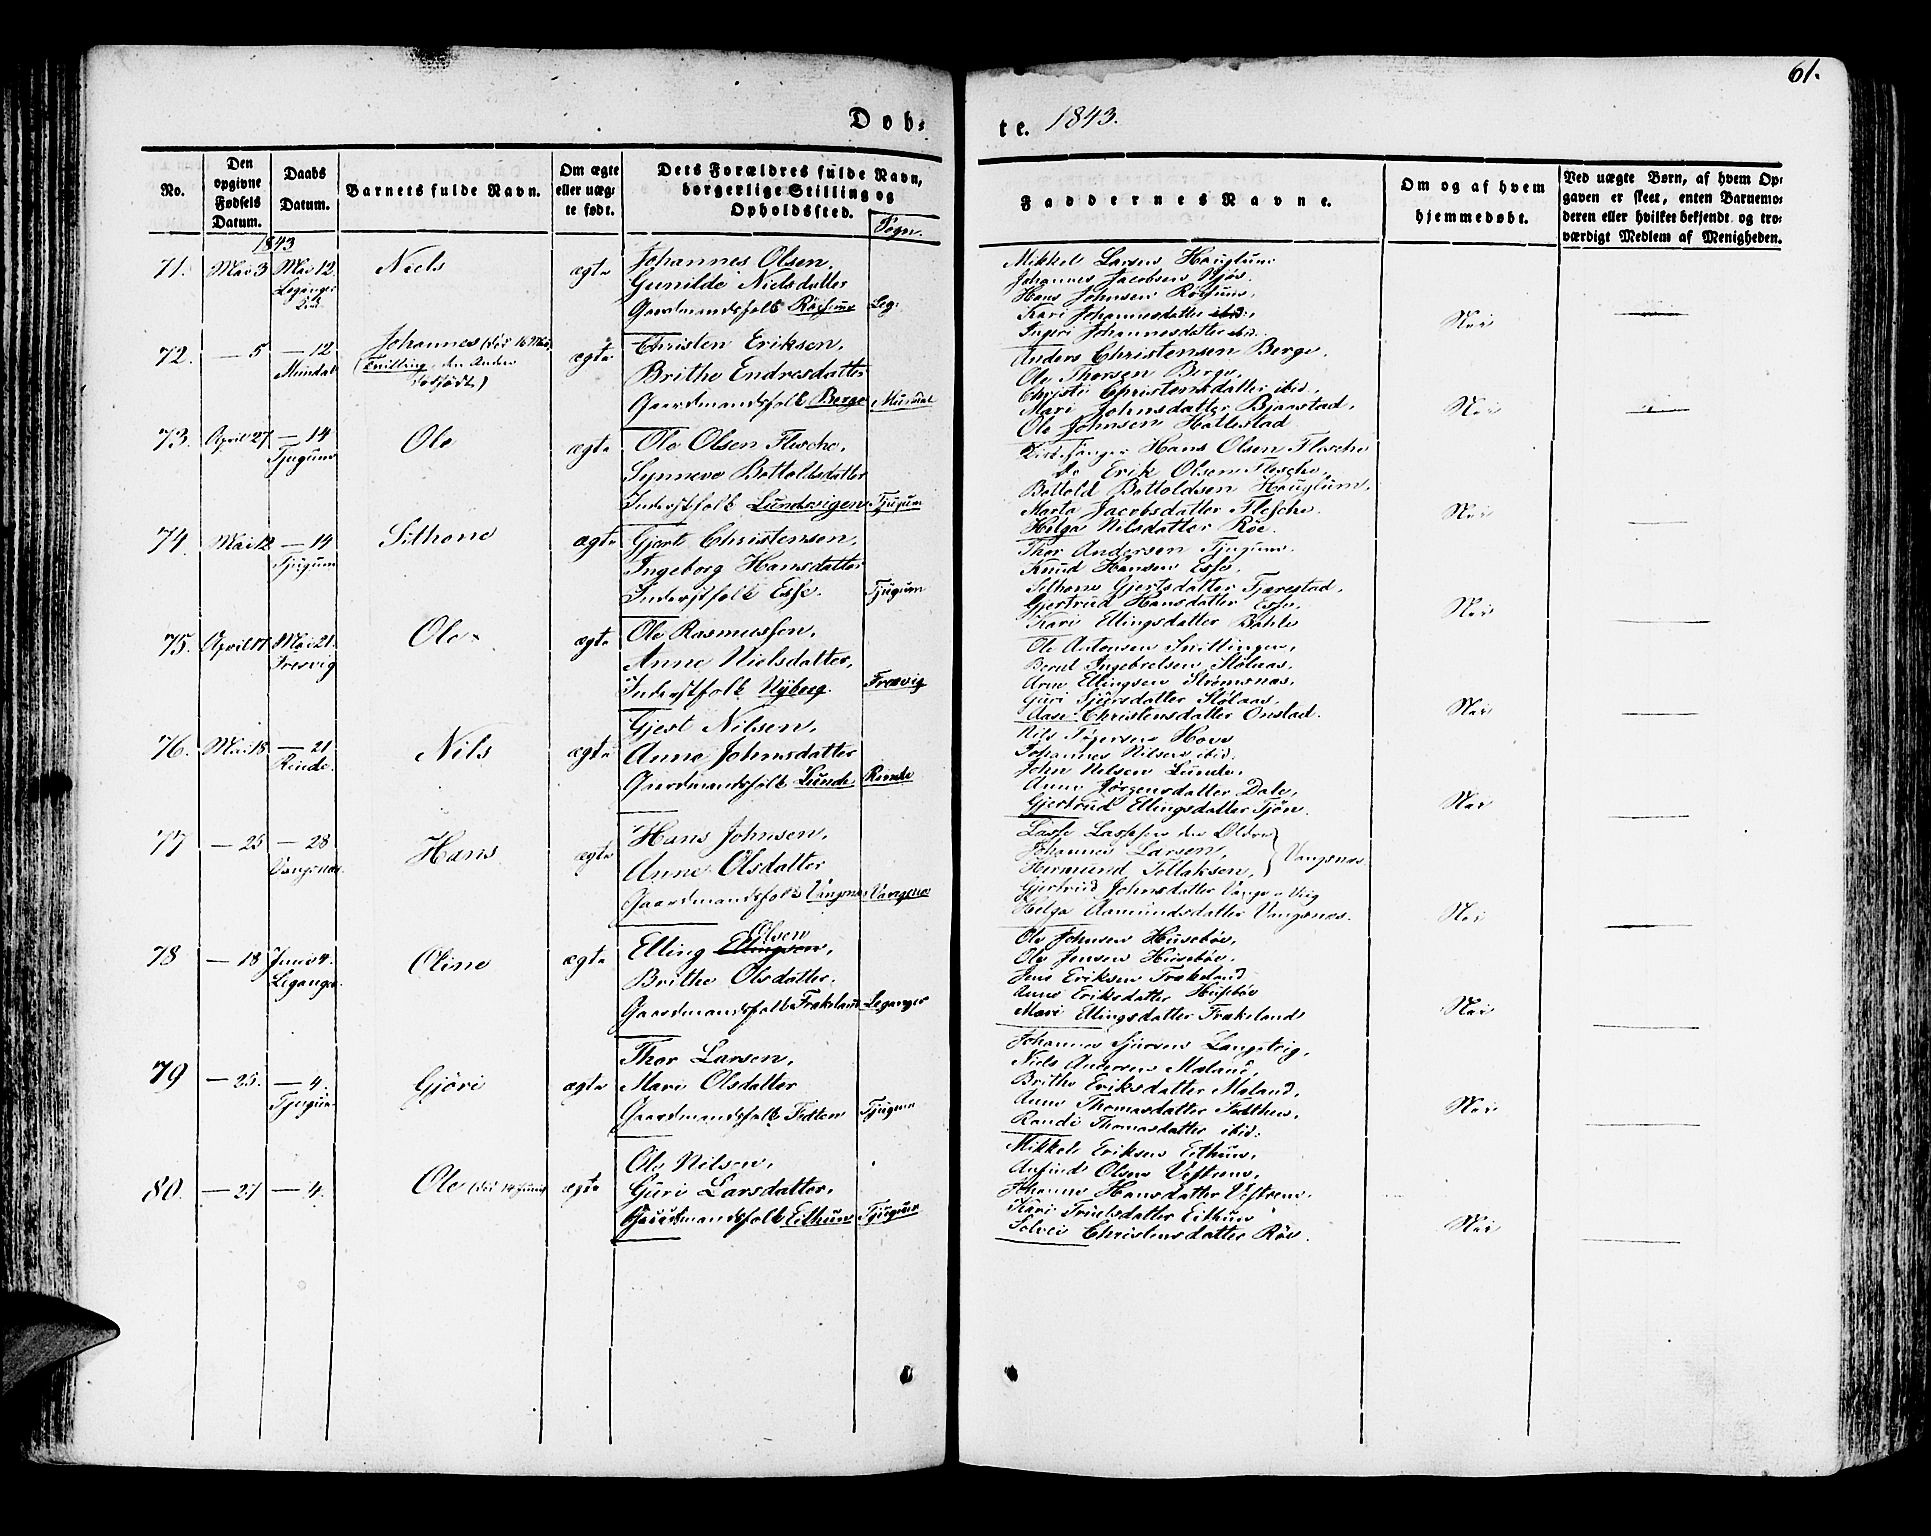 61.
Døb-
te. 1843.
No.
Den opgivne Fødsels Datum.
Daabs Datum.
Barnets fulde Navn.
Om ægte eller uægte født.
Dets Forældres fulde Navn, borgerlige Stilling og Opholdssted.
Sogn.
Faddernes Navne.
Om og af hvem hjemmedøbt.
Ved uægte Børn, af hvem Opgaven er skeet, enten Barnemoderen eller hvilket bekjendt og troværdigt Medlem af Menigheden.
1843
71. Mai 3 Mai 12. Leganger Niels ægte
Johannes Olsen,
Gunilde Nielsdatter
Gaardmandsfolk Røisum Leg:
Mikkel Larsen Hauglum
Johannes Jacobsen Njøs
Hans Johnsen Røisum,
Kari Johannesdatter ibid:
Ingeri Johannesdatter ibid.
Nei
72. — 5 — 12 Mundal Johannes (død 16 Mai) (Tvilling, den Anden dødfødt) ægte
Christen Eriksen,
Brithe Endresdatter
Gaardmandsfolk Berge Mundal
Anders Christensen Berge,
Ole Thorsen Berge,
Christi Christensdatter ibid.
Mari Johnsdatter Bjaastad,
Ole Johnsen Hallestad
Nei
73. April 27 — 14 Tjugum Ole ægte
Ole Olsen Flesche,
Synneve Bottoldsdatter
Inderstfolk Lundsvigen Tjugum
Kirkesanger Hans Olsen Flesche
Do Erik Olsen Flesche,
Bottold Bottoldsen Hauglum,
Marta Jacobsdatter Flesche.
Helga Nilsdatter Røe.
Nei
74. Mai 12 — 14 Tjugum Sithone ægte
Gjert Christensen,
Ingeborg Hansdatter
Inderstfolk Esse. Tjugum
Thor Andersen Tjugum.
Knud Hansen Esse.
Sithone Gjertsdatter Tjærestad,
Gjertrud Hansdatter Esse,
Kari Ellingsdatter Bahle
Nei
75. April 17 Mai 21. Fresvig Ole ægte
Ole Rasmussen,
Anne Nielsdatter,
Inderstfolk Nyborg. Fresvig
Ole Antonsen Snittingen,
Bernt Ingebretsen Stølaas,
Arne Ellingsen Strømsnæs,
Guri Sjursdatter Stølaas,
Aase Christensdatter Onstad.
Nei
76. Mai 18 — 21 Rinde. Nils ægte
Gjert Nilsen,
Anne Johnsdatter
Gaardmandsfolk Lunde, Rinde
Nils Hove
Johannes Nilsen ibid.
John Nilsen Lunde,
Anne Jørgensdatter Dale,
Gjertrud Ellingsdatter Tjøn.
Nei
77 — 25 — 28 Vangsnæs Hans ægte
Hans Johnsen,
Anne Olsdatter
Gaardmandsfolk Vangsnæs Vangsnæs
Lasse Lassesen den Ældre
Johannes Larsen,
Hermund Tollaksen, } Vangsnæs
Gjertrud Johnsdatter
Helga Aamundsdatter Vangsnæs.
Nei
78 — 18 Juni 4. Leganger. Oline ægte
Elling Ellingsen Olsen,
Brithe Olsdatter,
Gaardmandsfolk Frækeland Leganger
Ole Johnsen Husebøe,
Ole Jensen Husebøe,
Jens Eriksen Frækeland
Anne Eriksdatter Husebøe
Mari Ellingsdatter Frækeland
Nei
79 — 25. — 4. Tjugum Gjøri ægte
Thor Larsen,
Mari Olsdatter
Gaardmandsfolk Fedten Tjugum
Johannes Sjursen Langeteig,
Niels Andersen Mæland,
Brithe Eriksdatter Mæland,
Anne Thomasdatter Fedthen,
Randi Thomasdatter ibid:
Nei
80. — 27 — 4. Ole (død 14 Juni) ægte
Ole Nilsen,
Guri Larsdatter,
Gaardmandsfolk Eithun Tjugum
Mikkel Eriksen Eithun,
Anfind Olsen Vestrem,
Johanne Hansdatter Vestrem,
Kari Truelsdatter Eithun
Solvei Christensdatter Røe.
Nei